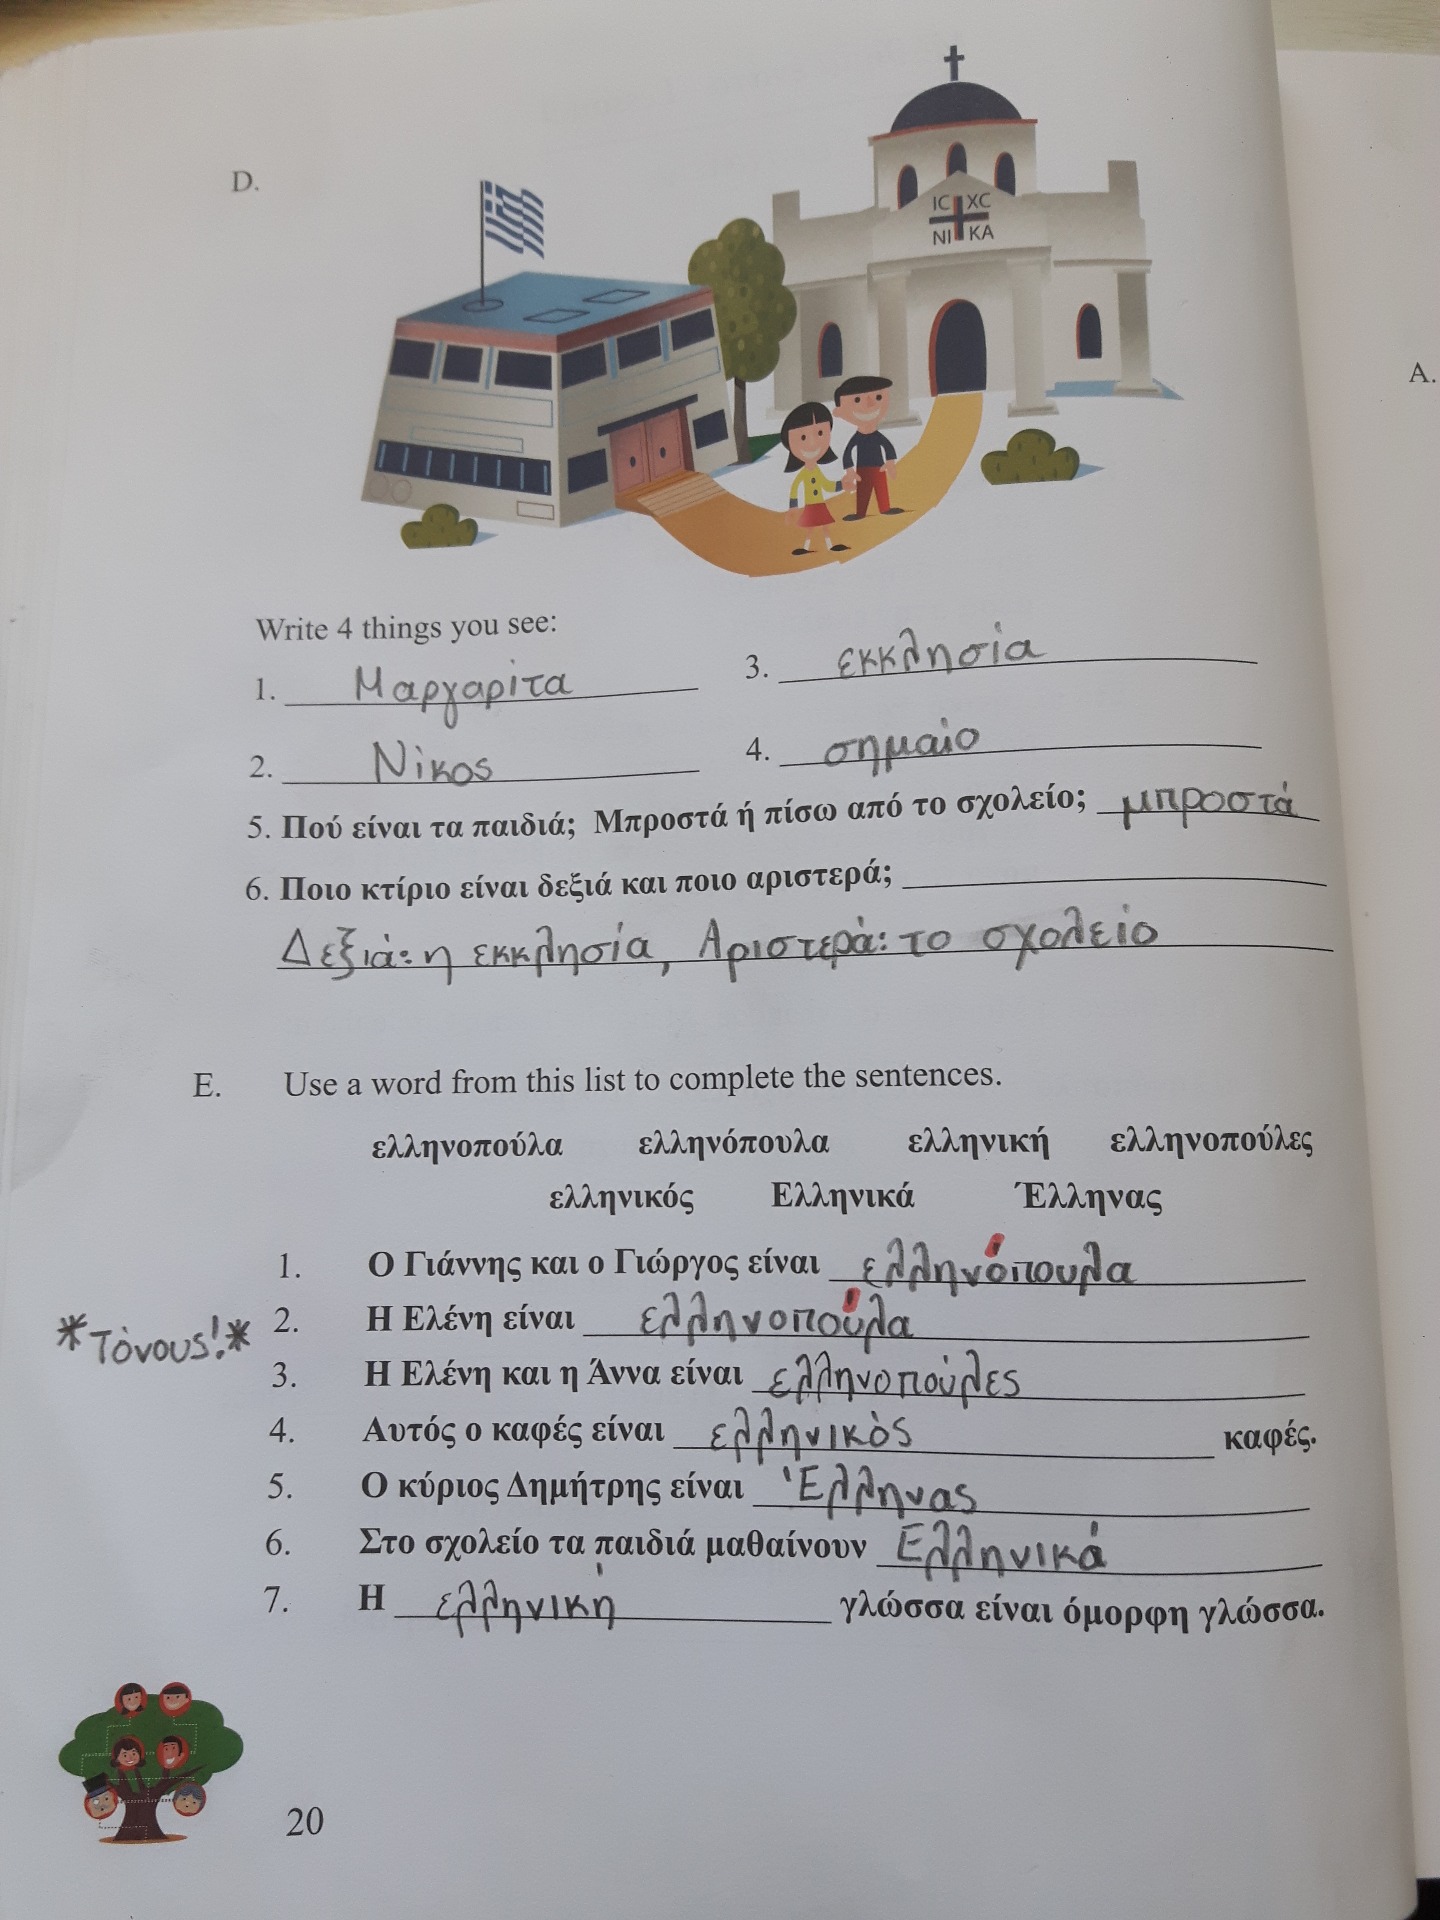 D.
IC XC
NI KA
A.
Write 4 things you see:
1. Μαργαρίτα 3. εκκλησία
2. Νίκος 4. σημαίο
5. Πού είναι τα παιδιά; Μπροστά ή πίσω από το σχολείο; μπροστά
6. Ποιο κτίριο είναι δεξιά και ποιο αριστερά;
Δεξιά: η εκκλησία, Αριστερά: το σχολείο
E. Use a word from this list to complete the sentences.
ελληνοπούλα ελληνόπουλα ελληνική ελληνοπούλες
ελληνικός Ελληνικά Έλληνας
1. Ο Γιάννης και ο Γιώργος είναι ελληνόπουλα
2. Η Ελένη είναι ελληνοπούλα
*Τόνους!*
3. Η Ελένη και η Άννα είναι ελληνοπούλες
4. Αυτός ο καφές είναι ελληνικός καφές.
5. Ο κύριος Δημήτρης είναι Έλληνας
6. Στο σχολείο τα παιδιά μαθαίνουν Ελληνικά
7. Η ελληνική γλώσσα είναι όμορφη γλώσσα.
20